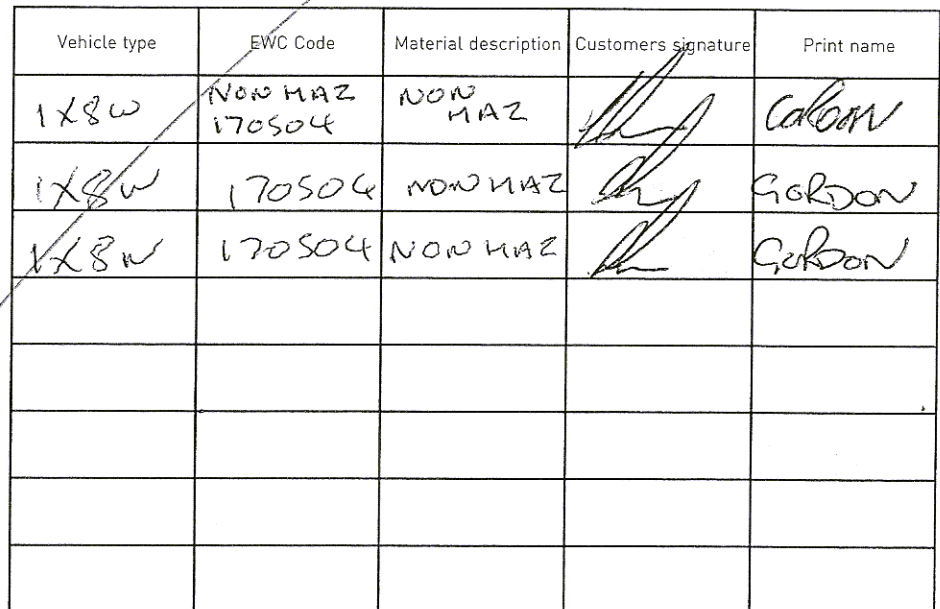 Vehicle type EWC Code Material description Customers signature Print name
1X8W NON HAZ 170504 NON HAZ GORDON
1X8W 170504 NON HAZ GORDON
1X8W 170504 NON HAZ GORDON